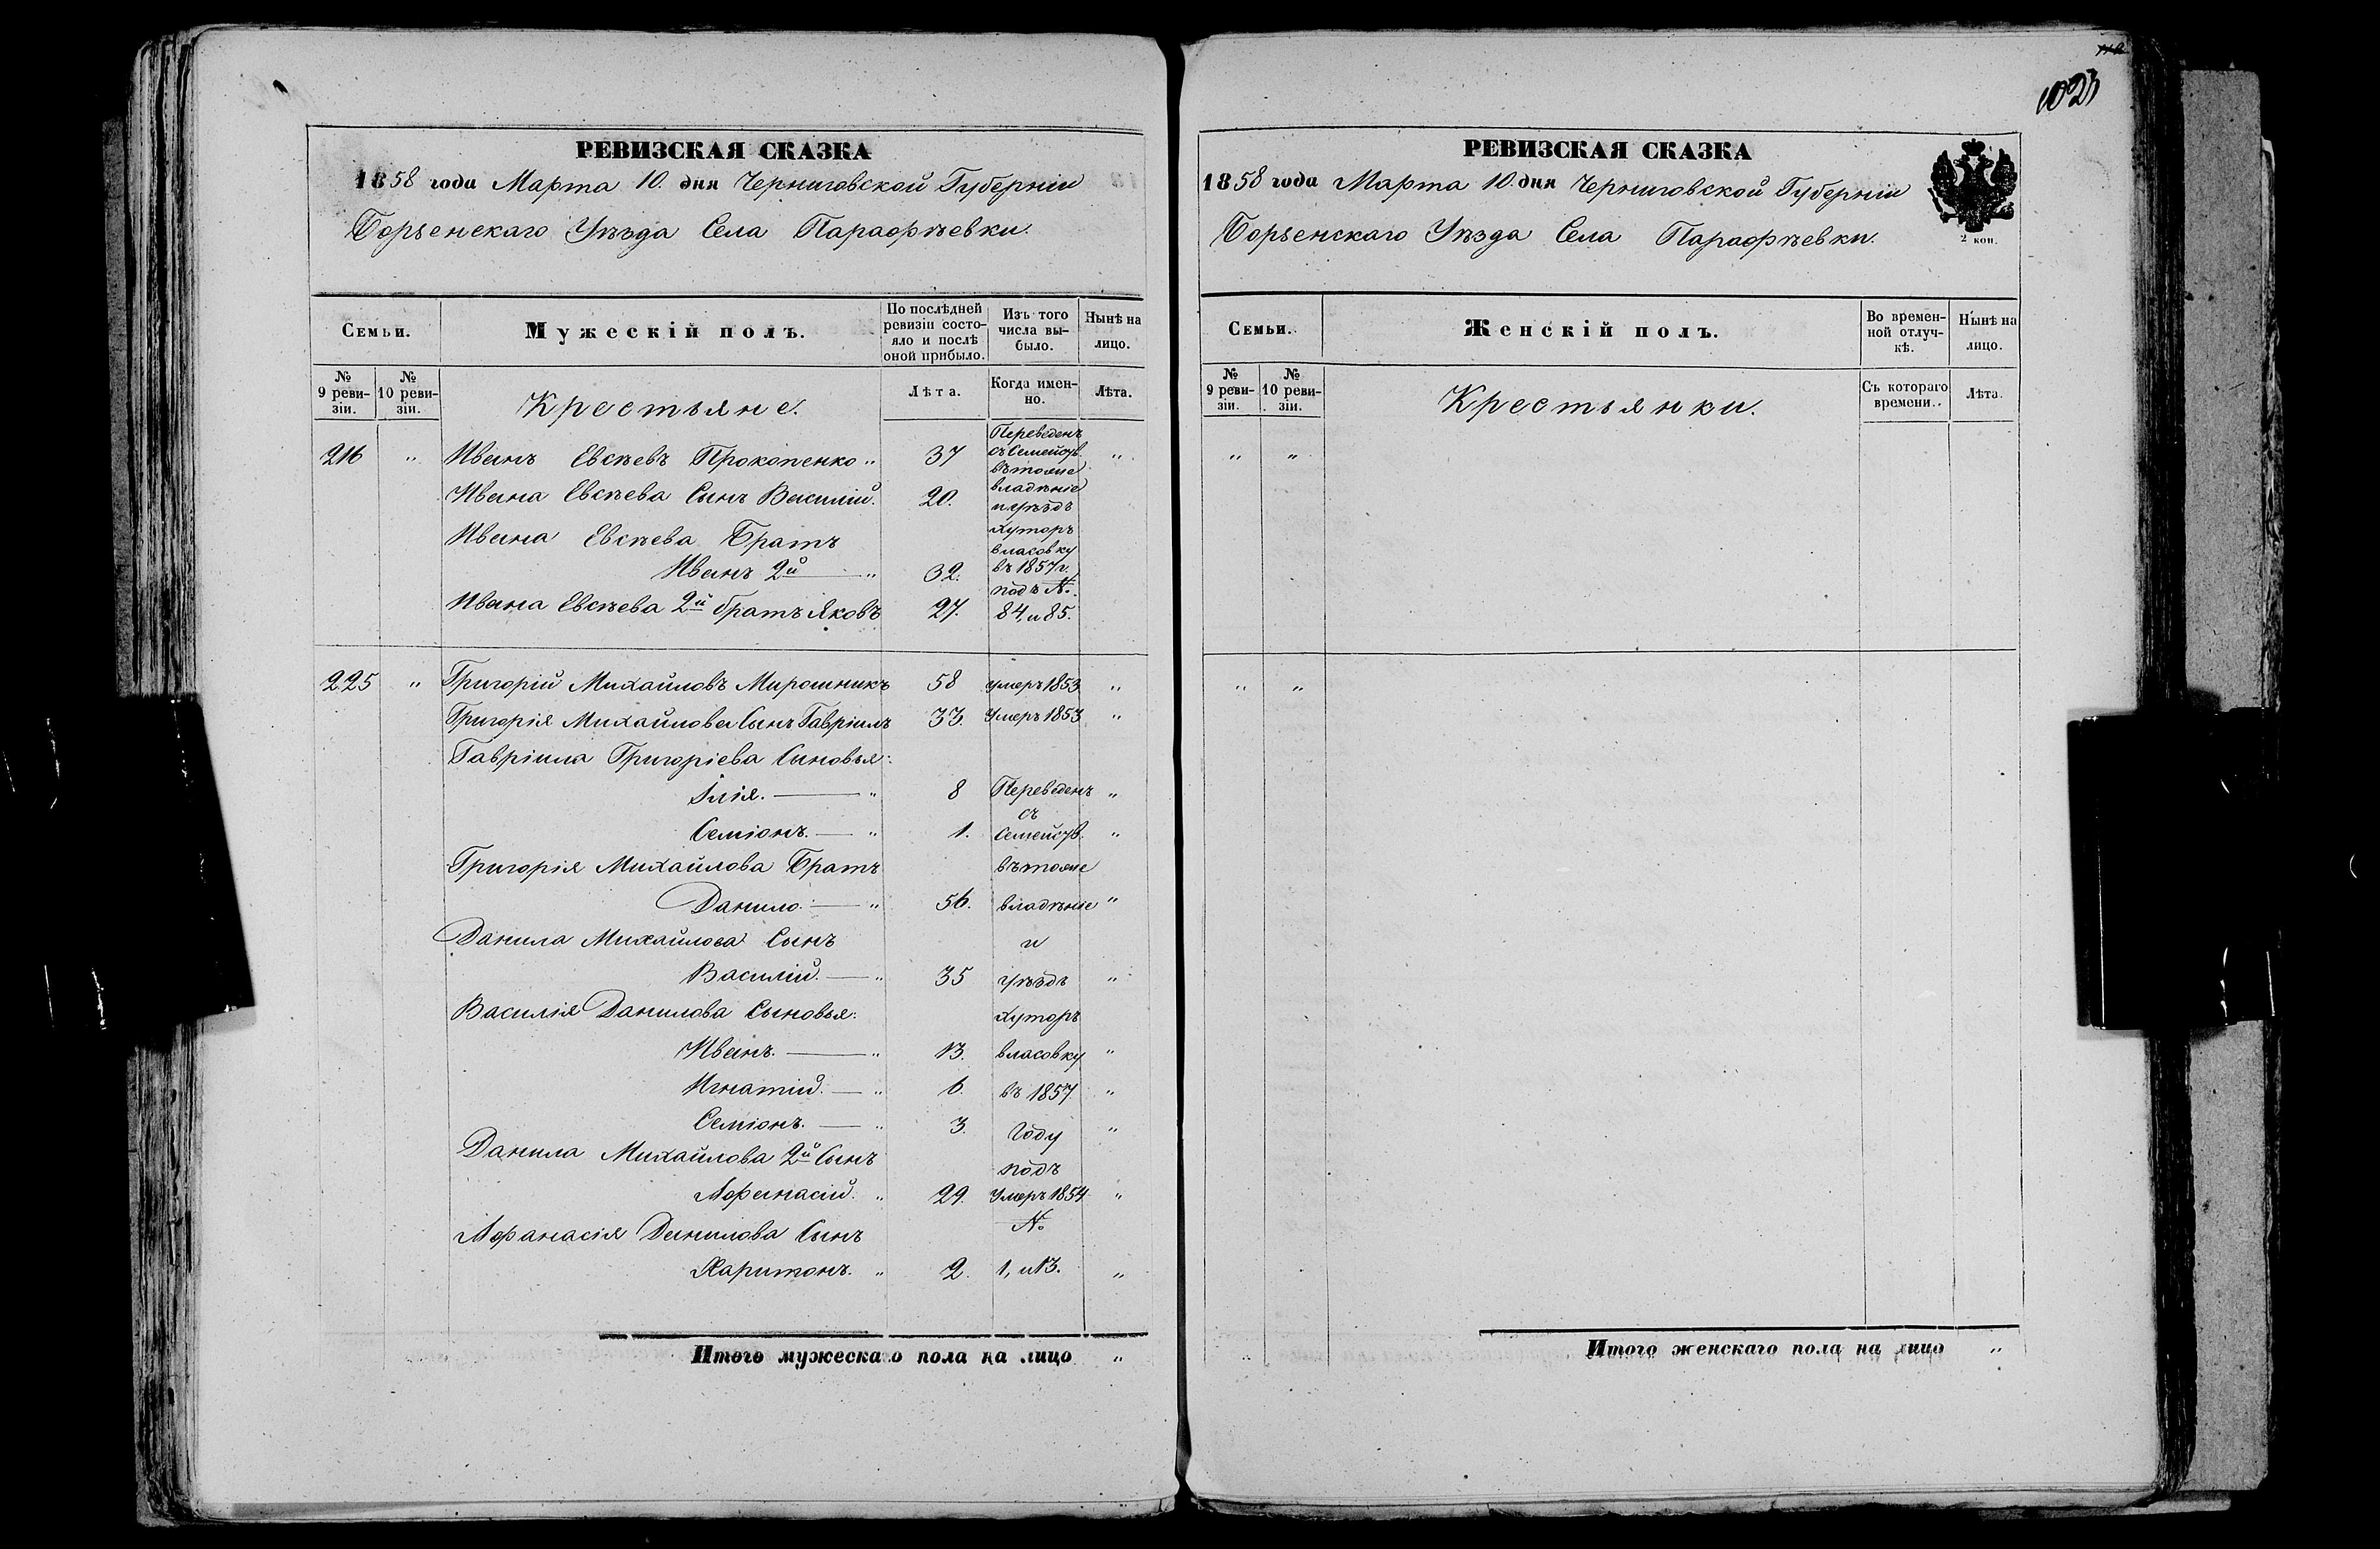 РЕВИЗСКАЯ СКАЗКА
1858 года Марта 10. дня Черниговской Губерніи
Борзенскаго Уѣзда Села Парафѣевки.
Семьи.
Мужескій полъ.
По послѣдней ревизіи состояло и послѣ оной прибыло.
Изъ того числа выбыло.
Нынѣ на лицо.
№ 9 ревизіи.
№ 10 ревизіи.
Крестьяне.
Лѣта.
Когда именно.
Лѣта.
216 " Иванъ Евсѣевъ Прокопенко " 37 Переведенъ съ Семейств. въ тоже "
Ивана Евсѣева Сынъ Василій. 20. владѣніе и уѣздъ
Ивана Евсѣева Братъ хуторъ
Иванъ 2й — " 32. власовку въ 1857 г.
Ивана Евсѣева 2й братъ Яковъ 27. подъ №. 84, и 85.
225 " Григорій Михайловъ Мирошникъ 58 умеръ 1853 "
Григорія Михайлова Сынъ Гавріилъ 33. Умеръ 1853 "
Гавріила Григоріева Сыновья:
Ілія. — " 8 Переведенъ "
съ
Семіонъ. — " 1. Семейств. "
Григорія Михайлова Братъ въ тоже
Данило. — " 56. владѣніе "
Данила Михайлова Сынъ и
Василій. — " 35 уѣздъ "
Василія Данилова Сыновья: хуторъ
Иванъ. — " 13. власовку "
Игнатій. — " 6. въ 1857 "
Семіонъ. — " 3. году "
Данила Михайлова 2й Сынъ подъ
Афанасій. " 29. Умеръ 1854 "
Афанасія Данилова Сынъ №
Харитонъ. " 2. 1, и 13. "
Итого мужескаго пола на лицо "
1023
РЕВИЗСКАЯ СКАЗКА
1858 года Марта 10. дня Черниговской Губерніи
Борзенскаго Уѣзда Села Парафѣевки.
2 коп.
Семьи.
Женскій полъ.
Во временной отлучкѣ.
Нынѣ на лицо.
№ 9 ревизіи.
№ 10 ревизіи.
Крестьянки.
Съ котораго времени.
Лѣта.
" "
" "
Итого женскаго пола на лицо "